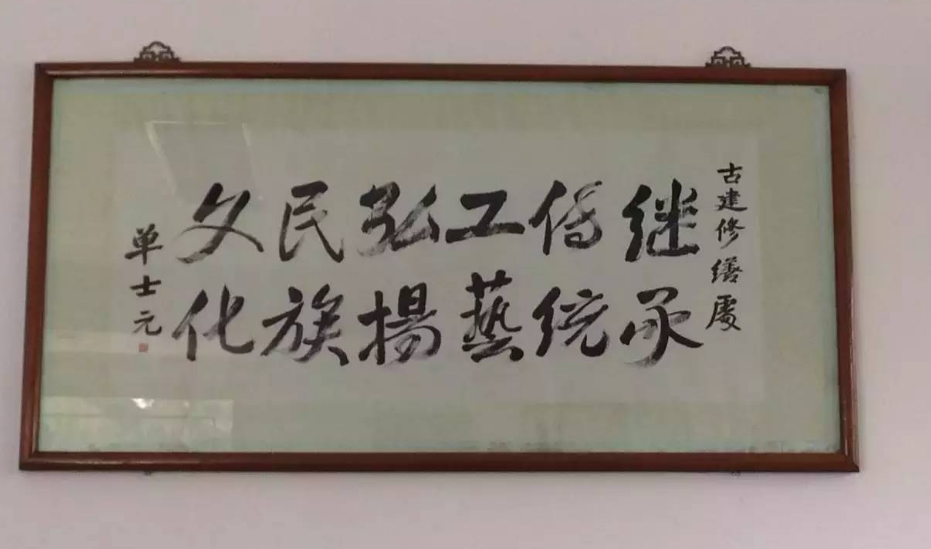 古建修缮处
继承
传统
工藝
弘揚
民族
文化
单士元